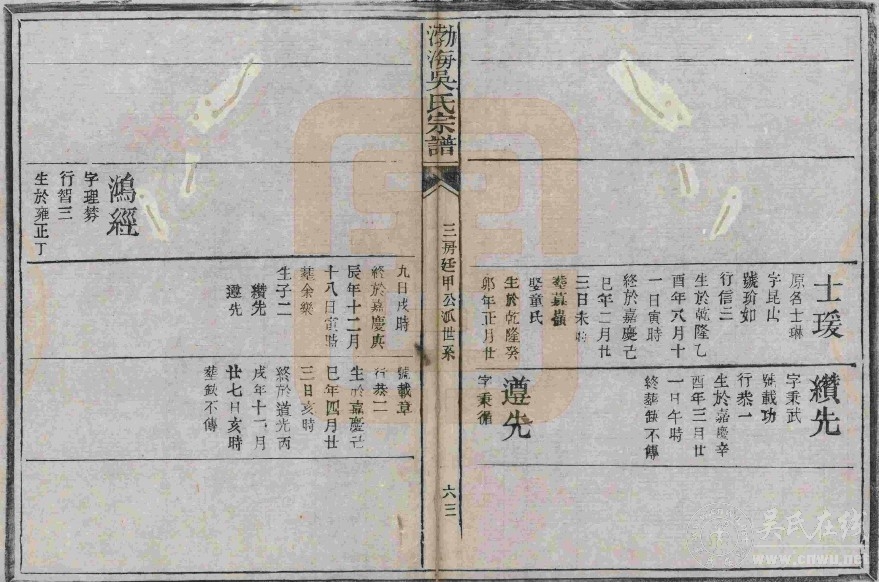 士瑗
原名士琳
字昆山
號瑜如
行信三
生於乾隆乙
酉年八月十
一日寅時
終於嘉慶己
巳年二月廿
三日未時
娶童氏
生於乾隆癸
卯年正月廿
九日戌時
終於嘉慶庚
辰年十二月
十八日寅時
葬余嶴
生子二
纘先
遵先
纘先
字秉武
號載功
行恭一
生於嘉慶辛
酉年三月廿
一日午時
終葬缺不傳
遵先
字秉循
號載章
行恭二
生於嘉慶己
巳年四月廿
三日亥時
終於道光丙
戌年十一月
廿七日亥時
葬缺不傳
渤海吳氏宗譜
三房廷甲公派世系
六三
鴻經
字理勞
行智三
生於雍正丁
吳氏在线
www.cnwu.net